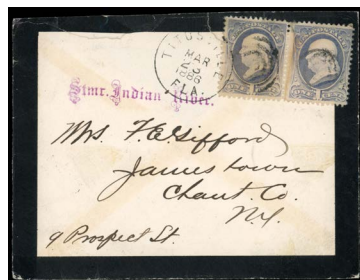 TITUSVILLE
MAR
23
1886
FLA.
Stmr. Indian River.
Mrs. F. E. Gifford
Jamestown
Chaut. Co.
N.Y.
9 Prospect St.